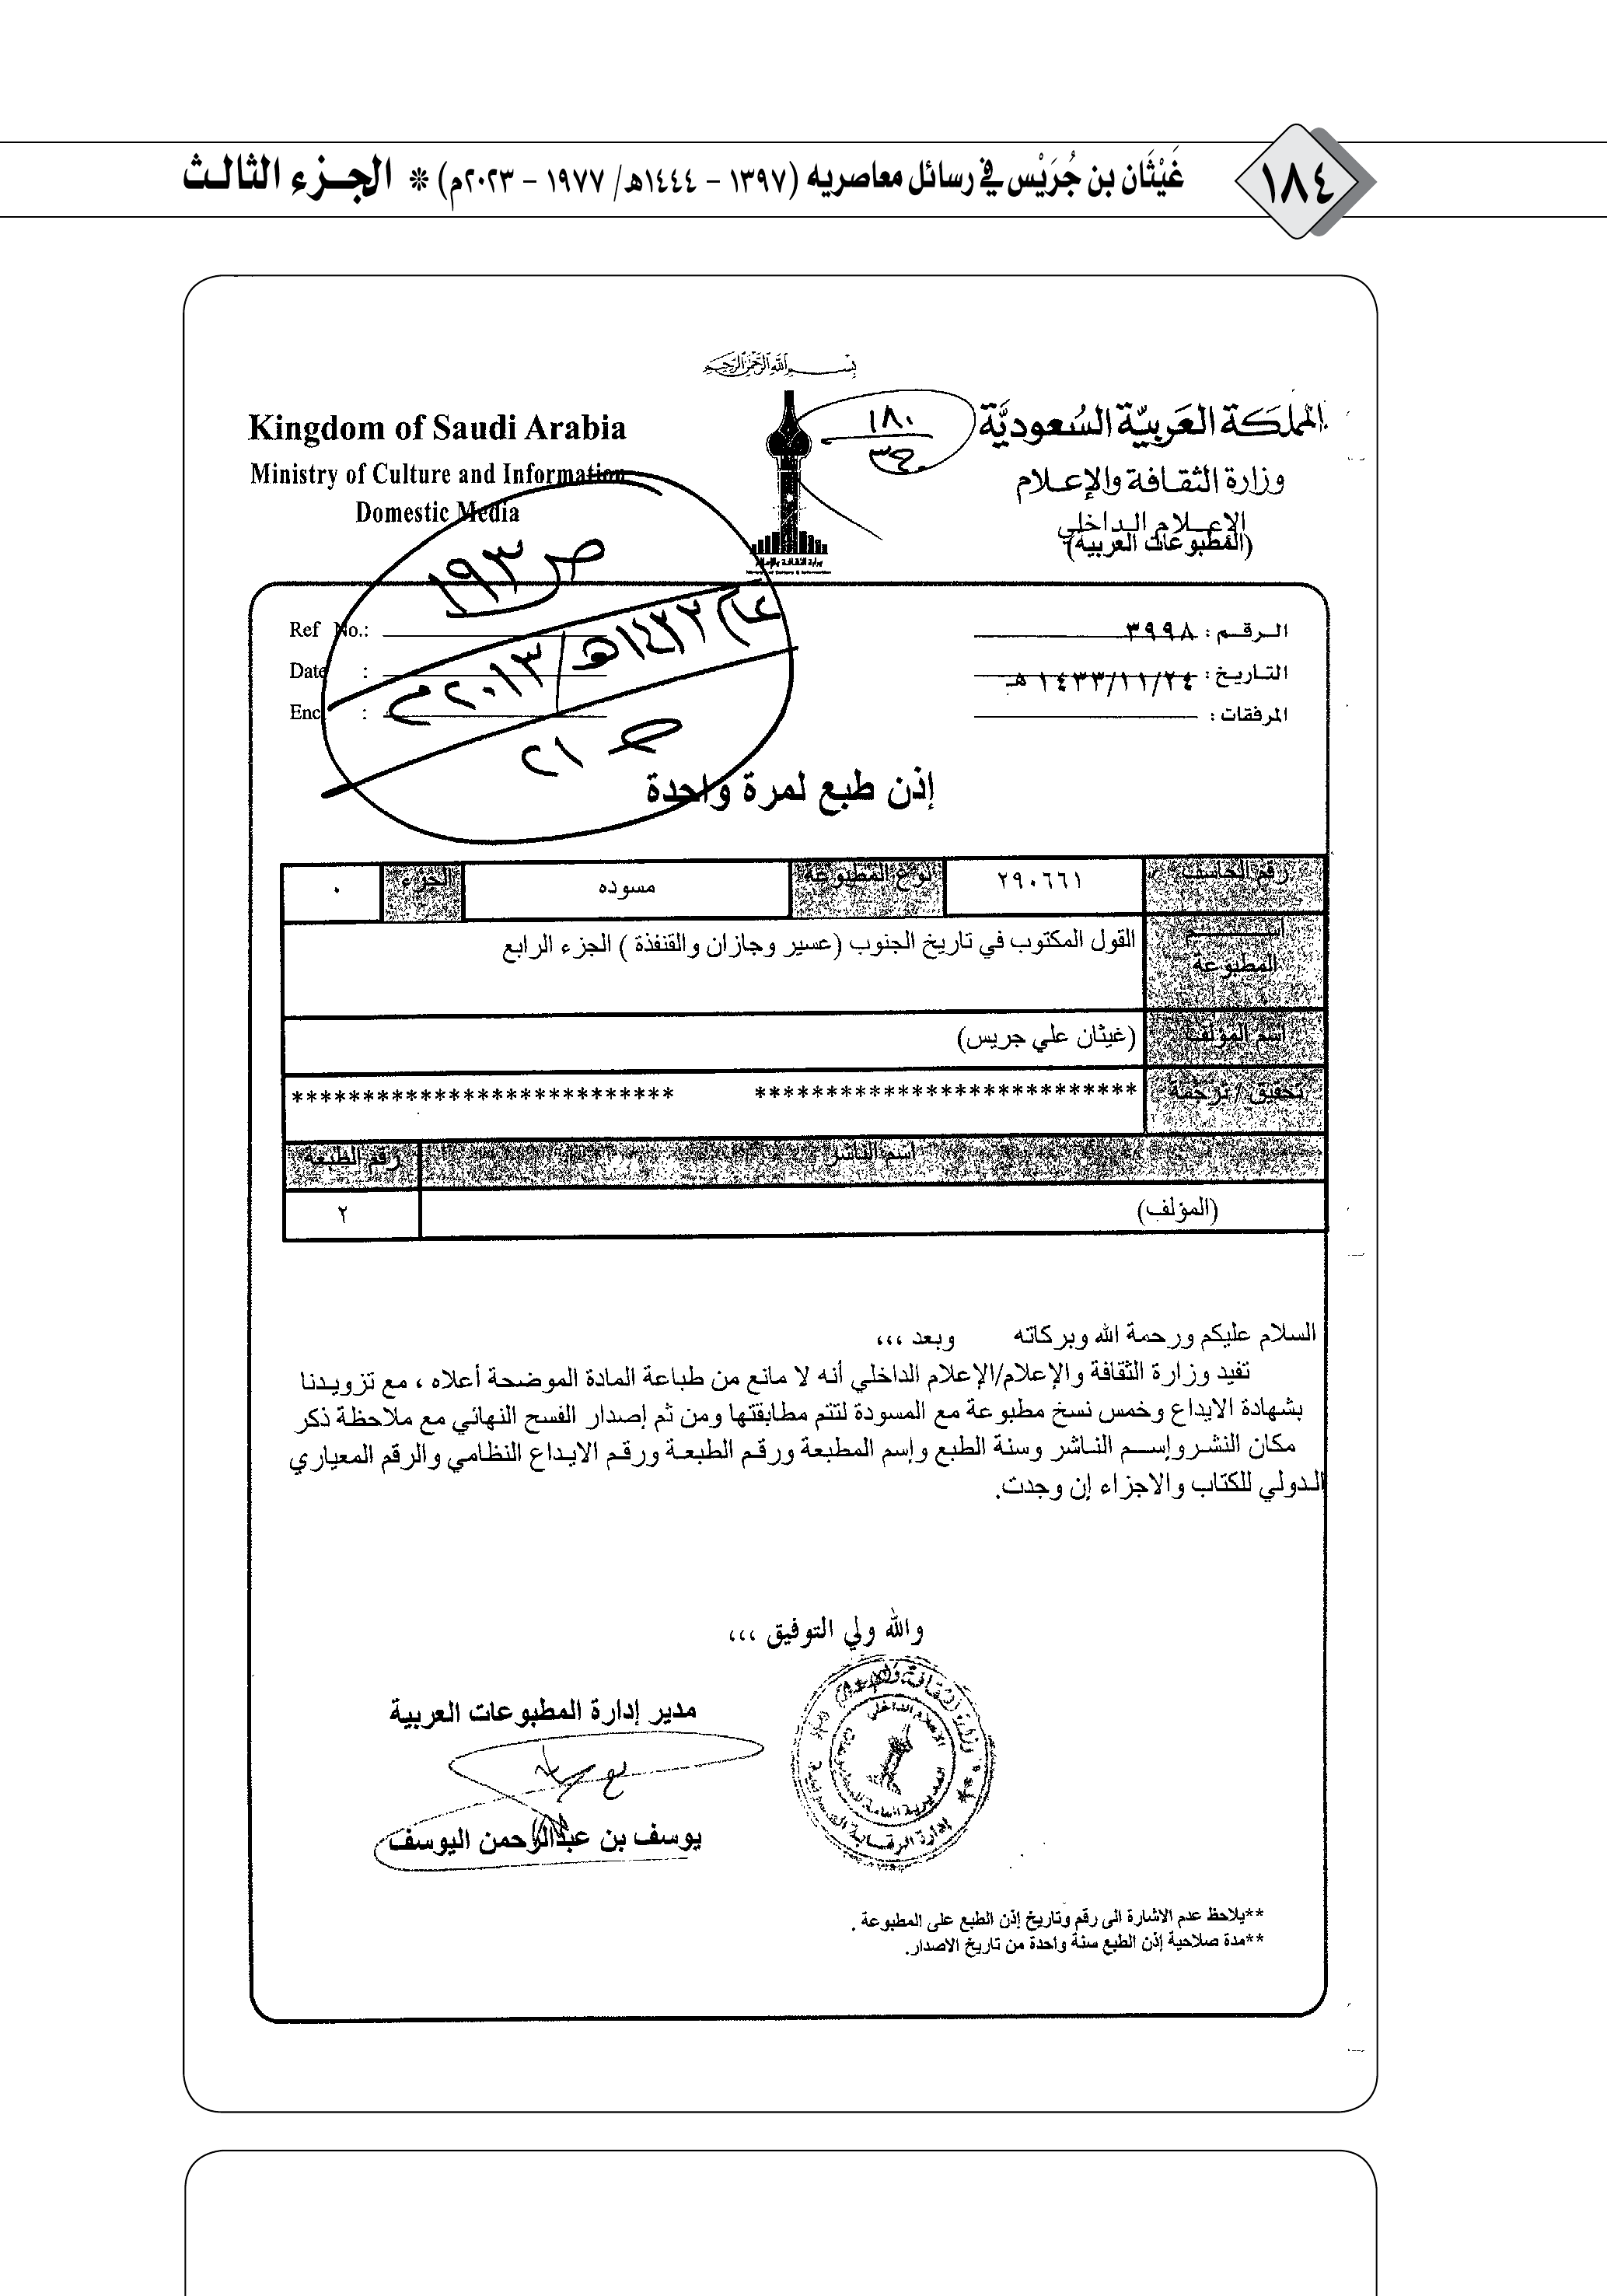 ١٨٤
غَيْثَان بن جُرَيْس في رسائل معاصريه (١٣٩٧ - ١٤٤٤هـ/ ١٩٧٧ - ٢٠٢٣م) * الجزء الثالث
بسم الله الرحمن الرحيم
المملكة العربية السعودية
وزارة الثقافة والإعلام
الإعلام الداخلي
(المطبوعات العربية)
١٨٠
Kingdom of Saudi Arabia
Ministry of Culture and Information
Domestic Media
وزارة الثقافة والإعلام
الرقم : ٣٩٩٨
التاريخ : ١٤٣٣/١١/٢٤ هـ
المرفقات :
Ref No.:
Date :
Enc :
ص ١٩٣
٢١
إذن طبع لمرة واحدة
رقم الحاسب ٢٩٠٦٦١ نوع المطبوعة مسوده الجزء ٠
اســـم المطبوعة القول المكتوب في تاريخ الجنوب (عسير وجازان والقنفذة ) الجزء الرابع
اسم المؤلف (غيثان علي جريس)
تحقيق / ترجمة *************************** ***************************
اسم الناشر رقم الطبعة
(المؤلف) ٢
السلام عليكم ورحمة الله وبركاته وبعد ،،،
تفيد وزارة الثقافة والإعلام/الإعلام الداخلي أنه لا مانع من طباعة المادة الموضحة أعلاه ، مع تزويدنا
بشهادة الايداع وخمس نسخ مطبوعة مع المسودة لتتم مطابقتها ومن ثم إصدار الفسح النهائي مع ملاحظة ذكر
مكان النشر وإسم الناشر وسنة الطبع وإسم المطبعة ورقم الطبعة ورقم الايداع النظامي والرقم المعياري
الدولي للكتاب والاجزاء إن وجدت.
والله ولي التوفيق ،،،
مدير إدارة المطبوعات العربية
يوسف بن عبدالرحمن اليوسف
**يلاحظ عدم الاشارة الى رقم وتاريخ إذن الطبع على المطبوعة .
**مدة صلاحية إذن الطبع سنة واحدة من تاريخ الاصدار.